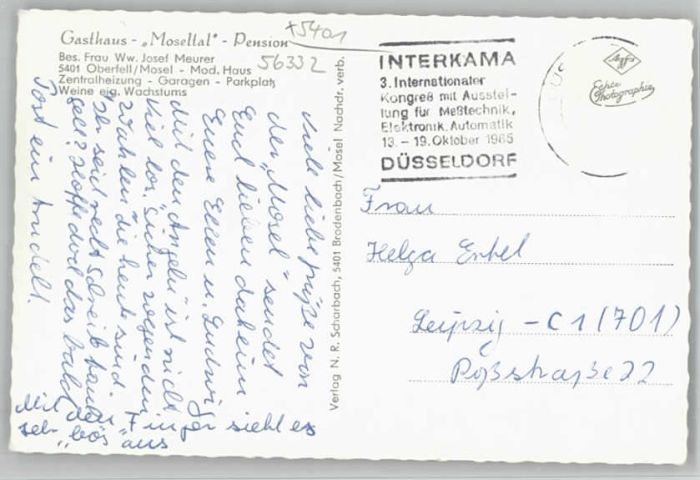 Gasthaus - „Moseltal" - Pension
Bes. Frau Ww. Josef Meurer
5401 Oberfell/Mosel - Mod. Haus
Zentralheizung - Garagen - Parkplatz
Weine eig. Wachstums
+5401
56332
INTERKAMA
3. Internationaler
Kongreß mit Ausstel-
lung für Meßtechnik,
Elektronik. Automatik
13. - 19. Oktober 1965
DÜSSELDORF
Agfa
Echte
Photographie
Verlag N. R. Scharbach, 5401 Brodenbach/Mosel Nachdr. verb.
Viele liebe Grüße von
der „Mosel" sendet
Euch lieben daheim
Euere Ellen u. Ludwig
Mit den Angeln ist nicht
viel los, sicher wegen den
Wahlen die heute sind.
Ihr seid recht schreib
soll? Hoffe doch das bald
Post ein
Mit dem Finger sieht es
sehr „bös" aus
Frau
Helga Ertel
Leipzig - C1 (701)
Roßstraße 22